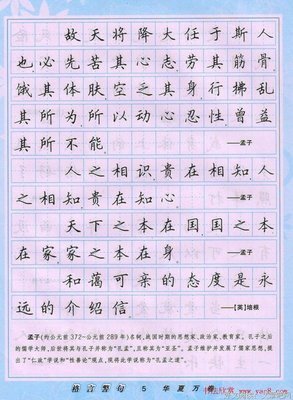 故天将降大任于斯人
也,必先苦其心志,劳其筋骨,
饿其体肤,空乏其身,行拂乱
其所为,所以动心忍性,曾益
其所不能。 ——孟子
人之相识,贵在相知,人
之相知,贵在知心。 ——孟子
天下之本在国,国之本
在家,家之本在身。 ——孟子
和蔼可亲的态度是永
远的介绍信。 ——[英]培根
孟子(约公元前372~公元前289年)名轲,战国时期的思想家、政治家、教育家。孔子之后
的儒学大师,后世将其与孔子并称为“孔孟”,且称其为“亚圣”。孟子维护并发展了儒家思想,提
出了“仁政”学说和“性善论”观点,现将此学说称为“孔孟之道”。
格言警句 5 华夏万